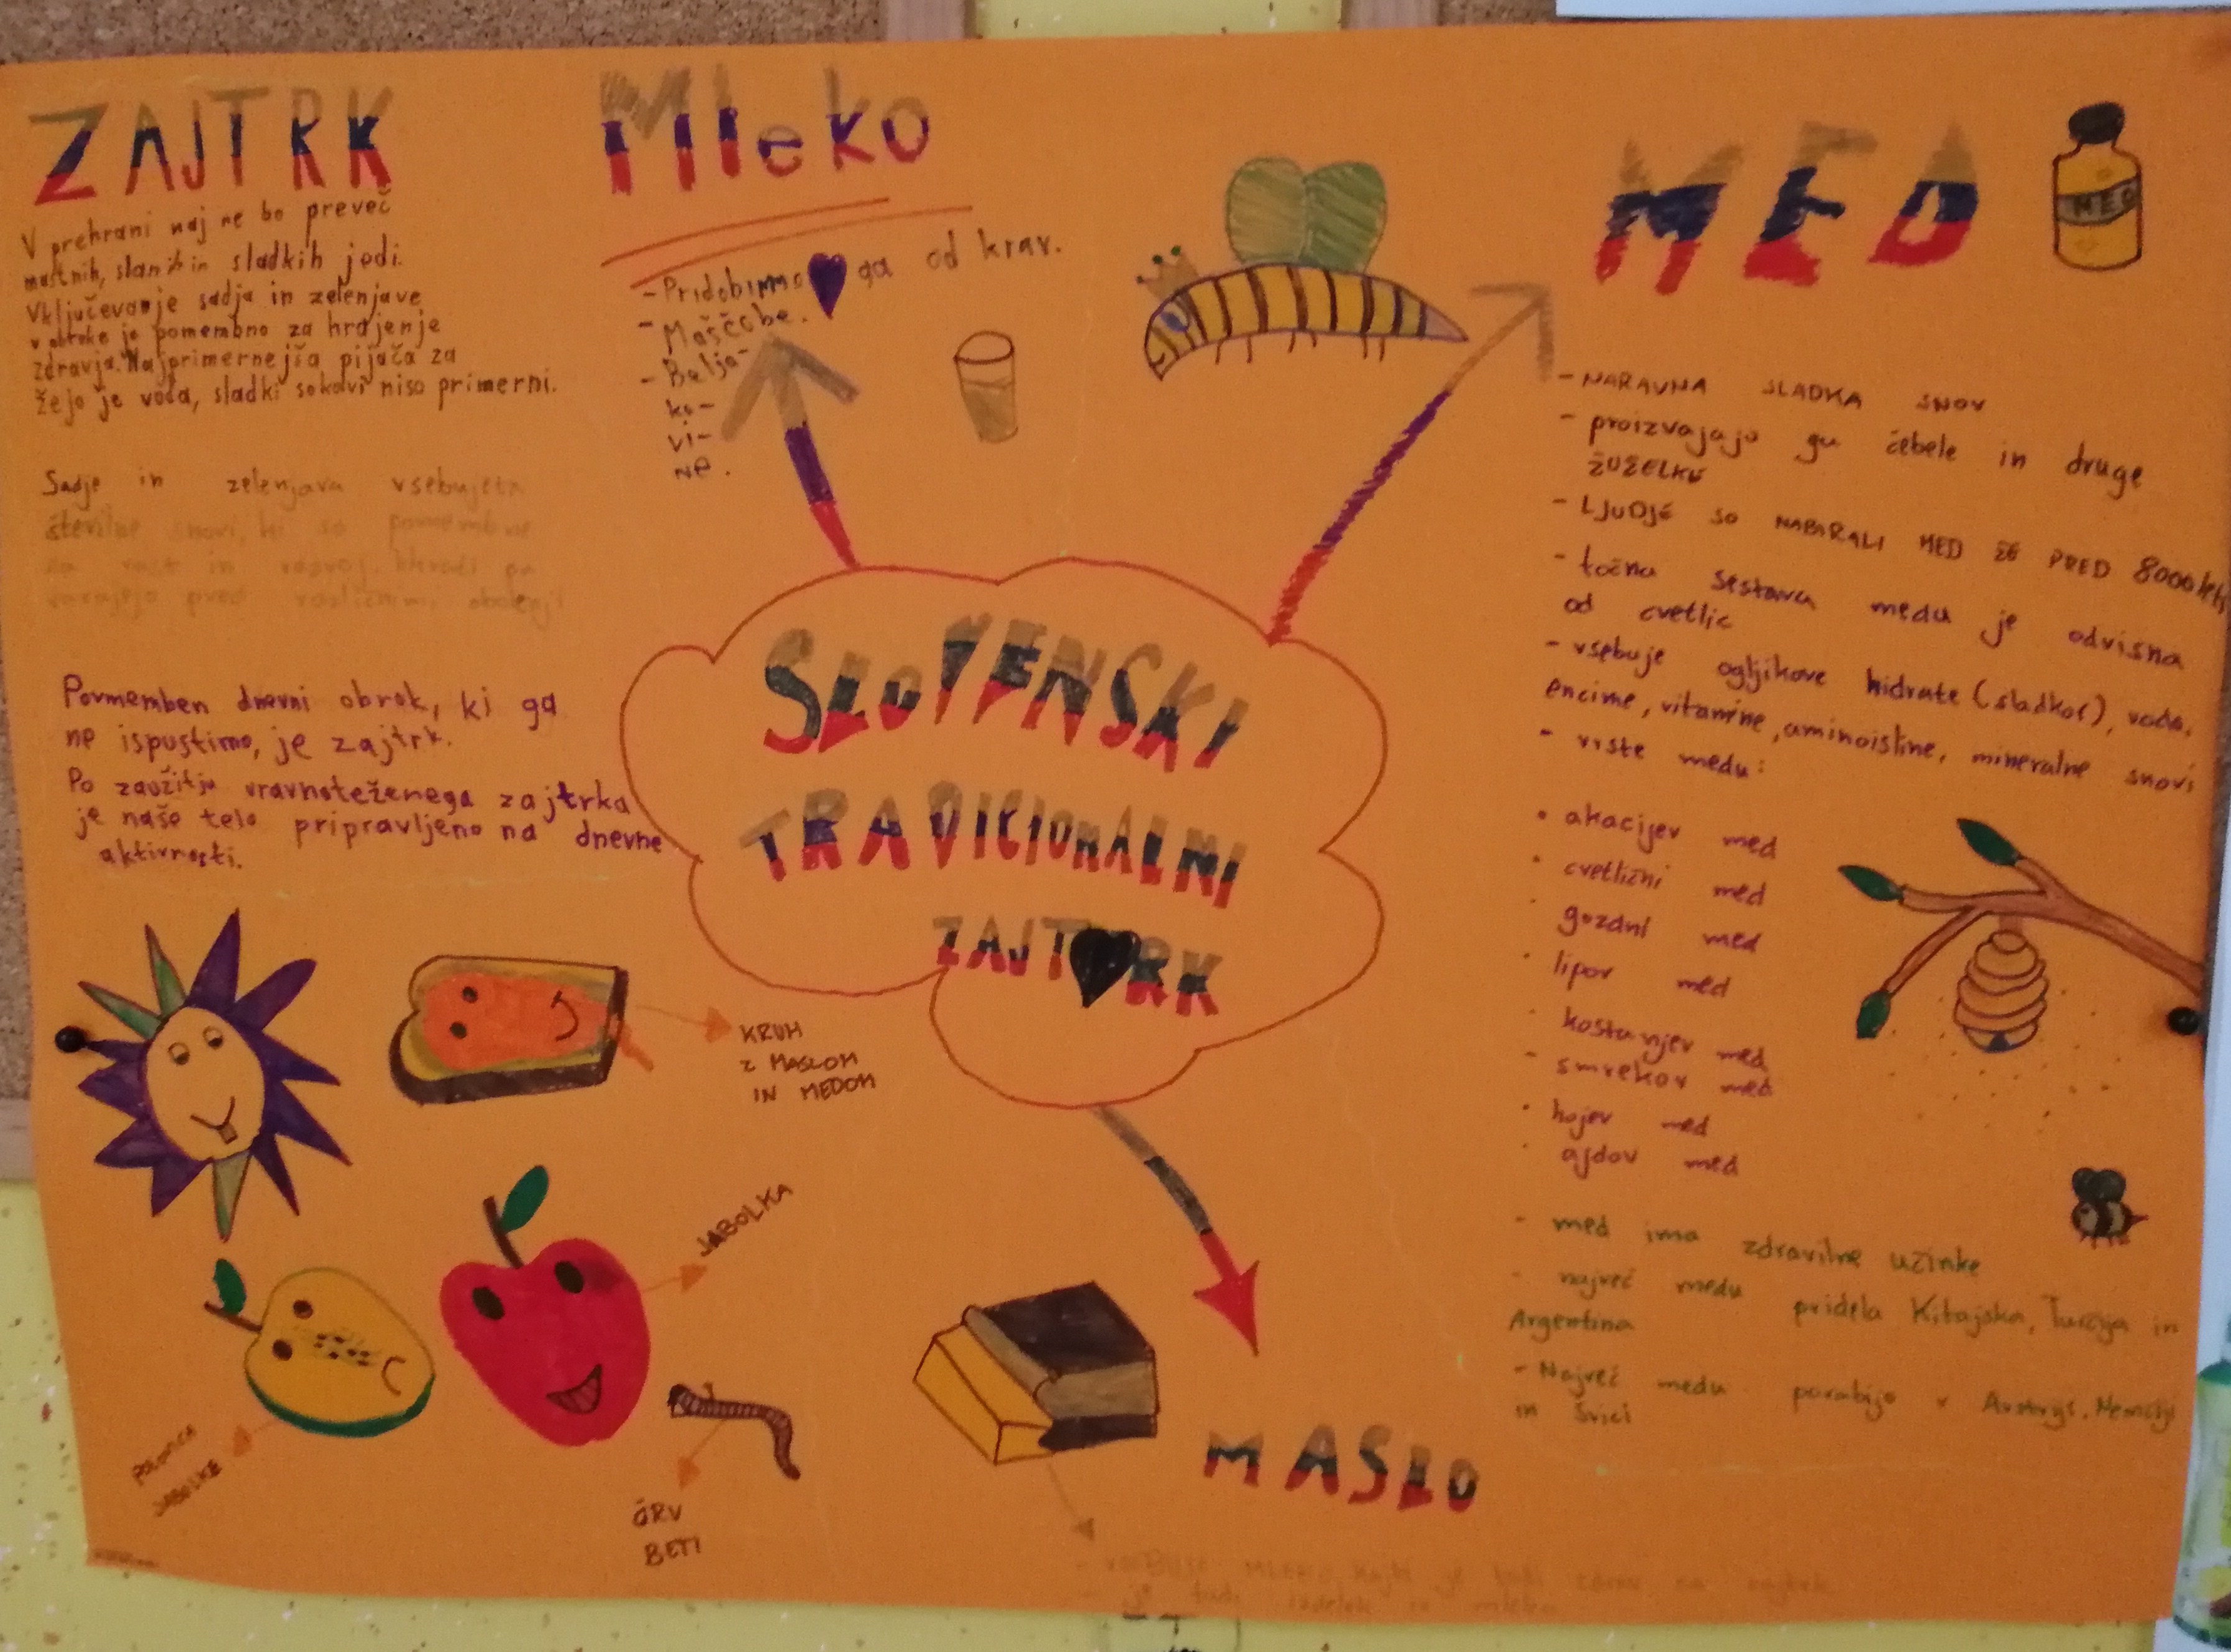 ZAJTRK
V prehrani naj ne bo preveč
mastnih, slanih in sladkih jedi.
Vključevanje sadja in zelenjave
v obroke je pomembno za hranjenje
zdravja. Najprimernejša pijača za
žejo je voda, sladki sokovi niso primerni.
Sadje in zelenjava vsebujeta
številne snovi, ki so pomembne
za rast in razvoj, hkrati pa
varujejo pred različnimi obolenji
Povmemben dnevni obrok, ki ga
ne ispustimo, je zajtrk.
Po zaužitju uravnoteženega zajtrka
je naše telo pripravljeno na dnevne
aktivnosti.
Mleko
- Pridobimo ga od krav.
- Maščobe.
- Belja-
ko-
vi-
ne.
MED
MED
- NARAVNA SLADKA SNOV
- proizvajajo ga čebele in druge
ŽUŽELKE
- LJUDJE SO NABIRALI MED ŽE PRED 8000 leti
- točna sestava medu je odvisna
od cvetlic
- vsebuje ogljikove hidrate (sladkor), voda,
encime, vitamine, aminoisline, mineralne snovi
- vrste medu:
• akacijev med
• cvetlični med
• gozdni med
• lipov med
• kostanjev med
- smrekov med
• hojev med
• ajdov med
- med ima zdravilne učinke
- največ medu pridela Kitajska, Turčija in
Argentina
- Največ medu porabijo v Avstriji, Nemčiji
in Švici
SLOVENSKI
TRADICIONALNI
ZAJTRK
KRUH
Z MASLOM
IN MEDOM
JABOLKA
POLOVICA
JABOLKE
ČRV
BETI
MASLO
- VSEBUJE MLEKO
- je tudi izdelek iz mleka